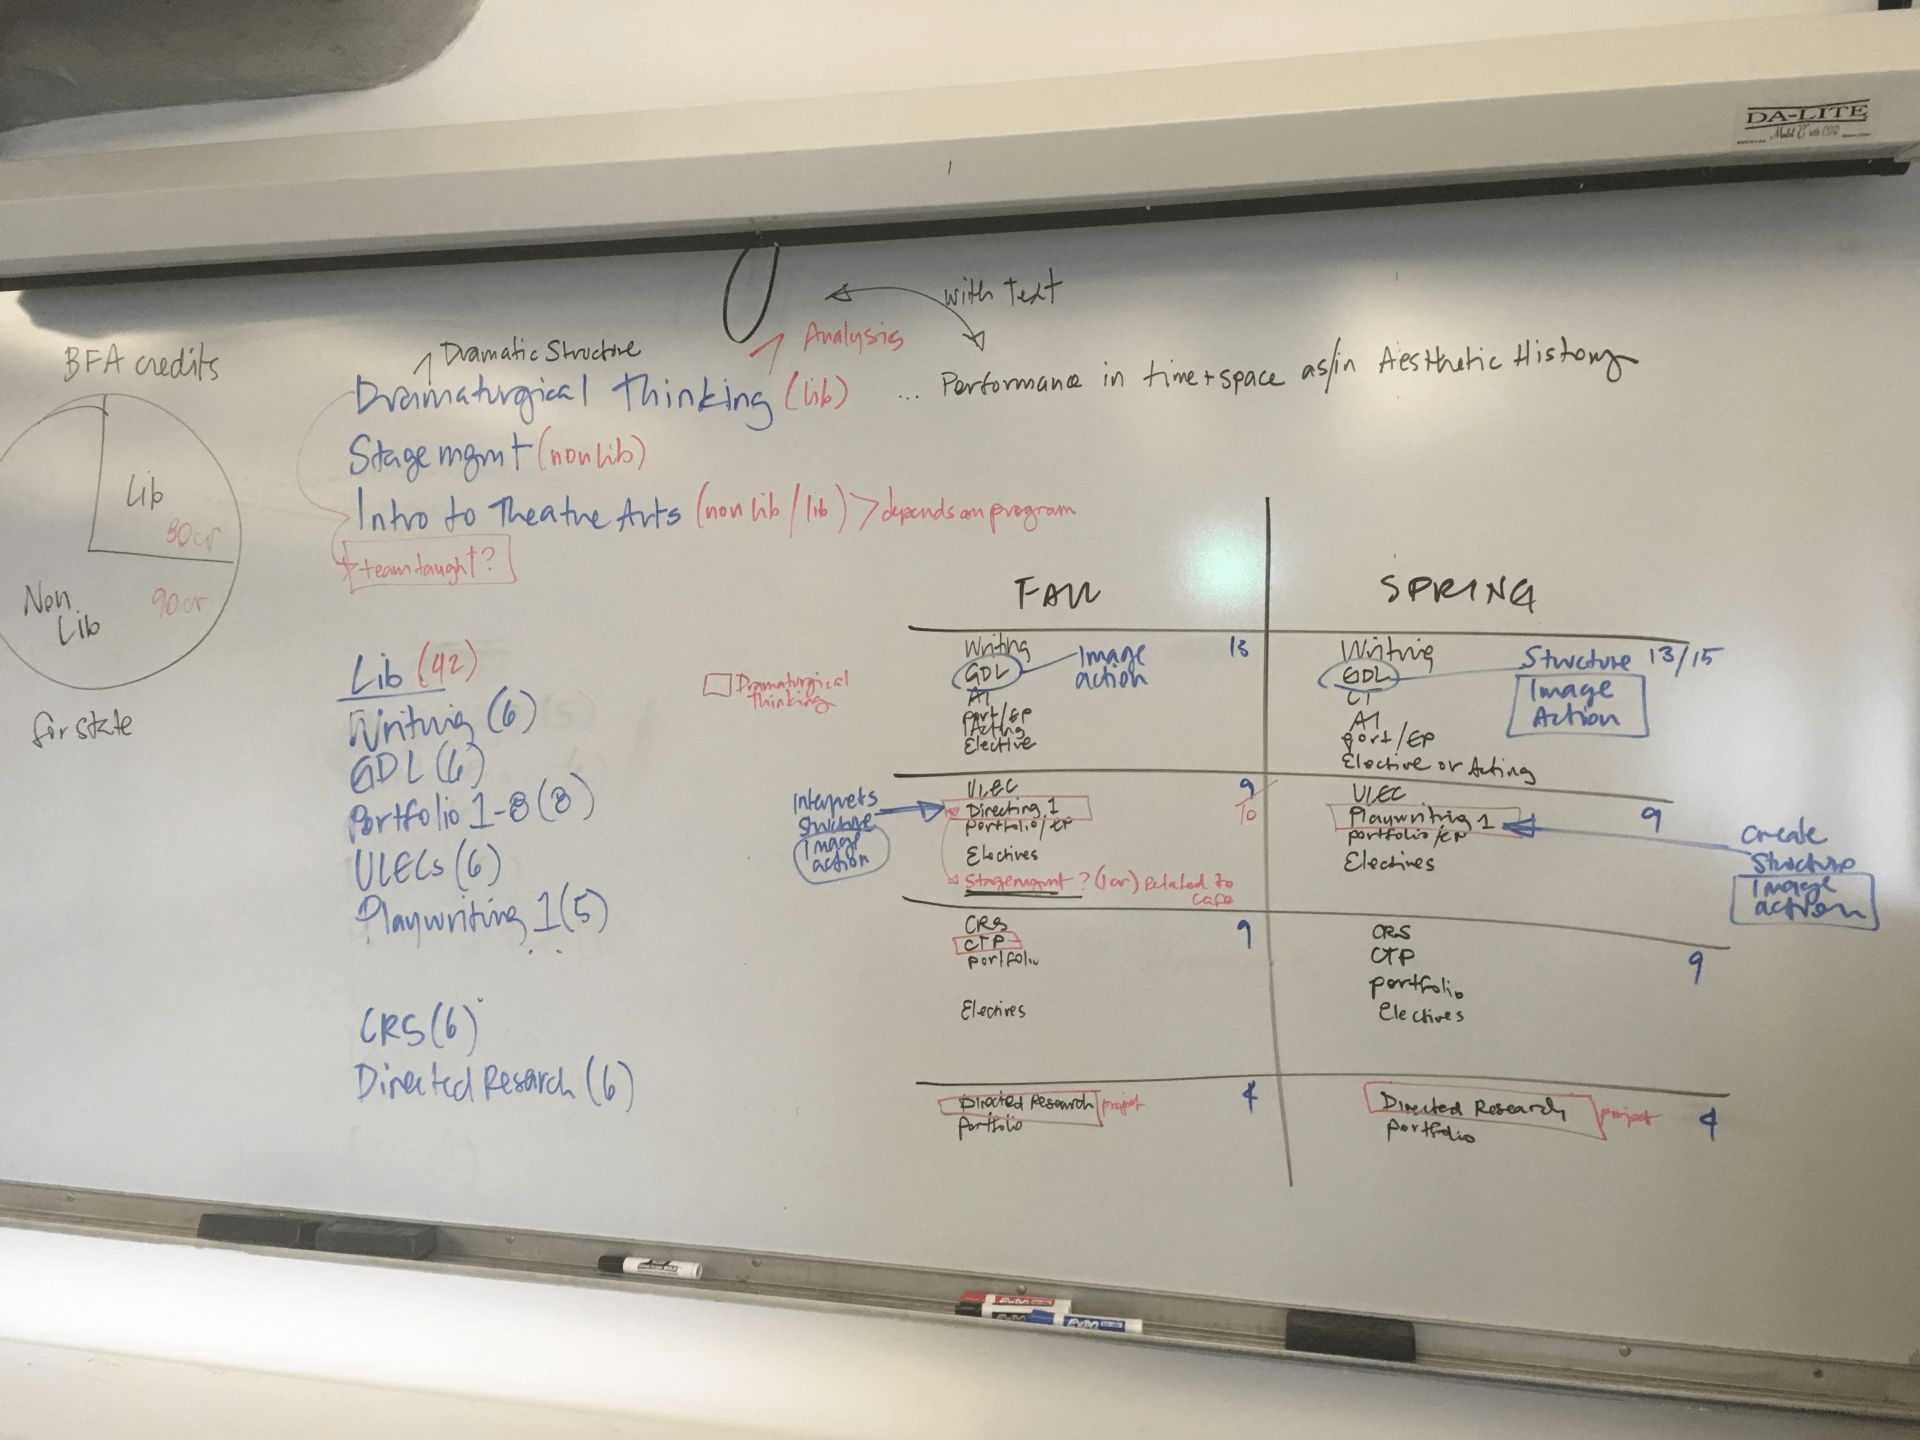 DA-LITE
with Text
Analysis
Dramatic Structure
BFA credits
Dramaturgical Thinking (lib) ... Performance in time + space as/in Aesthetic History
Stage mgmt (non lib)
Intro to Theatre Arts (non lib / lib) > depends on program
team taught?
Lib
30cr
Non Lib
90cr
for state
Lib (42)
Writing (6)
GDL (6)
Portfolio 1-8 (8)
ULECs (6)
Playwriting 1 (5)
CRS (6)
Directed Resarch (6)
Dramaturgical
Thinking
FALL
Writing 13
GDL Image
action
AI
port/EP
Acting
Elective
ULEC 9
10
Directing 1
portfolio/EP
Electives
Stage mgmt? (1cr) Related to
Interprets
structure
Image
action
CRS 9
CTP
portfolio
Electives
Directed Research project 4
portfolio
SPRING
Writing
GDL Structure 13/15
Image
Action
CT
AI
port/EP
Elective or Acting
ULEC
Playwriting 1 9
portfolio/EP
Electives
Create
Structure
Image
action
CRS
CTP 9
portfolio
Electives
Directed Research project 4
portfolio
EXPO